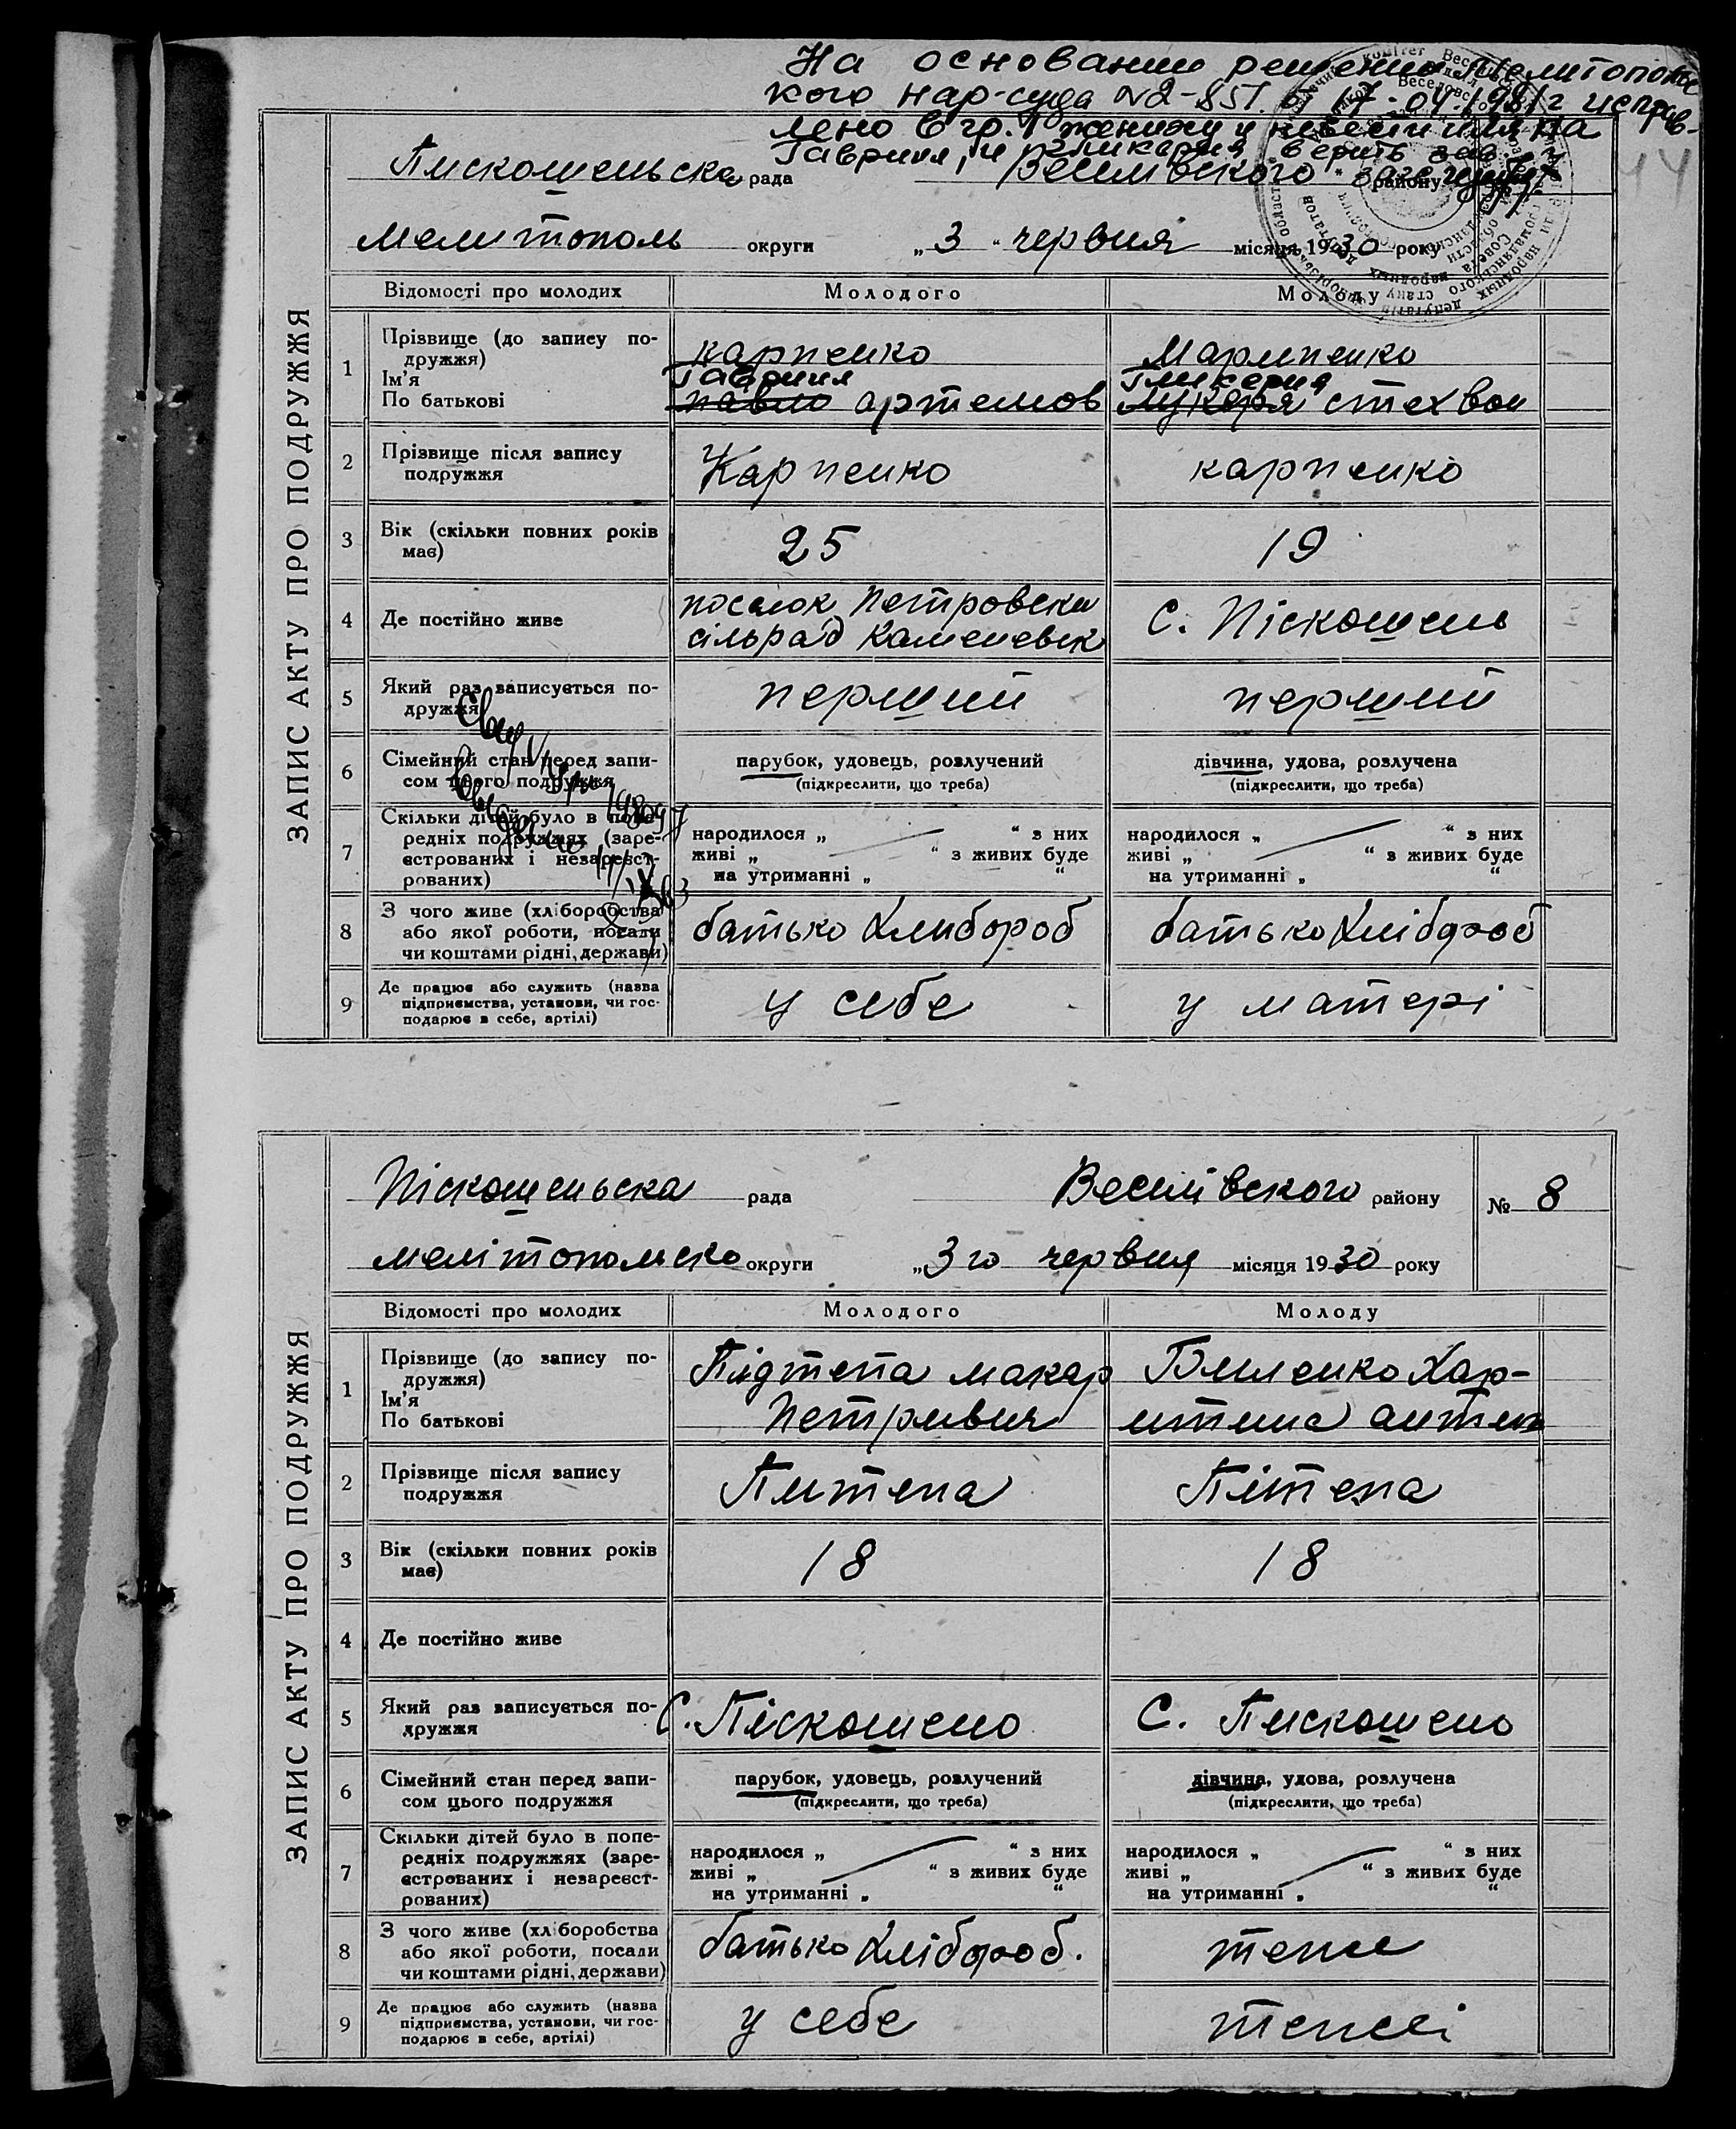 На основании решения Мелитопольс
кого нар-суда №2-851 от 17-04-1981 г исправ-
лено в гр. 1 жениху и невесте имя на
Гавриил, и Гликерия верить
Пискошеньска рада Веселівского району
Мелитополь округи „3“ червня місяця 1930 року
ЗАПИС АКТУ ПРО ПОДРУЖЖЯ
Відомості про молодих Молодого Молоду
1 Прізвище (до запису по-
дружжя)
Ім'я
По батькові
карпенко
Гавриил
павло артемов
Марченко
Гликерия
лукеря
2 Прізвище після запису
подружжя
Карпенко карпенко
3 Вік (скільки повних років
має)
25 19
4 Де постійно живе
поселок Петровски
сільрад Каменевск
С. Піскошень
5 Який раз записується по-
дружжя
перший перший
6 Сімейний стан перед запи-
сом цього подружжя
парубок, удовець, розлучений
(підкреслити, що треба)
дівчина, удова, розлучена
(підкреслити, що треба)
7 Скільки дітей було в попе-
редніх подружжях (заре-
єстрованих і незареєст-
рованих)
народилося „ “ з них
живі „ “ з живих буде
на утриманні „ “
народилося „ “ з них
живі „ “ з живих буде
на утриманні „ “
8 З чого живе (хліборобства
або якої роботи, посади
чи коштами рідні, держави)
батько Хлибороб батько Хлібороб
9 Де працює або служить (назва
підприємства, установи, чи гос-
подарює в себе, артілі)
у себе у матері
Піскошеньска рада Веселівского району № 8
мелітопольско округи „3го червня місяця 1930 року
ЗАПИС АКТУ ПРО ПОДРУЖЖЯ
Відомості про молодих Молодого Молоду
1 Прізвище (до запису по-
дружжя)
Ім'я
По батькові
Підтепа макар
Петрович
Хар-
итина антон
2 Прізвище після запису
подружжя
Питепа Пітепа
3 Вік (скільки повних років
має)
18 18
4 Де постійно живе
5 Який раз записується по-
дружжя
С. Піскошено С. Пискошено
6 Сімейний стан перед запи-
сом цього подружжя
парубок, удовець, розлучений
(підкреслити, що треба)
дівчина, удова, розлучена
(підкреслити, що треба)
7 Скільки дітей було в попе-
редніх подружжях (заре-
єстрованих і незареєст-
рованих)
народилося „ “ з них
живі „ “ з живих буде
на утриманні „ “
народилося „ “ з них
живі „ “ з живих буде
на утриманні „ “
8 З чого живе (хліборобства
або якої роботи, посади
чи коштами рідні, держави)
батько Хлібороб. теже
9 Де працює або служить (назва
підприємства, установи, чи гос-
подарює в себе, артілі)
у себе